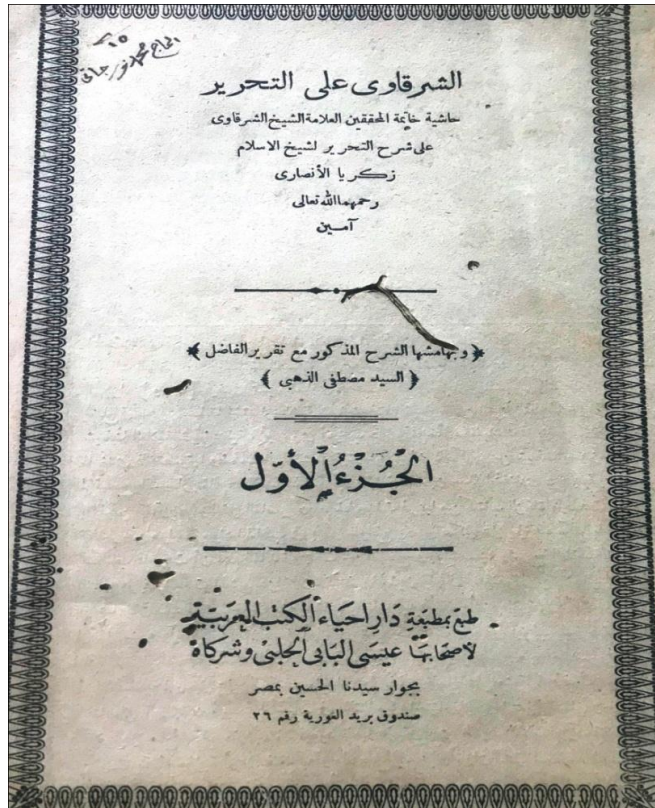 الحاج محمد نور جاني
الشرقاوى على التحرير
حاشية خاتمة المحققين العلامة الشيخ الشرقاوى
على شرح التحرير لشيخ الاسلام
زكريا الأنصارى
رحمهما الله تعالى
آمين
﴿ وبهامشها الشرح المذكور مع تقرير الفاضل ﴾
﴿ السيد مصطفى الذهبى ﴾
الْجُزْءُ الْأَوَّل
طبع بمطبعة دَارِ احيَاء الكتب العَرَبيَّة
لأصحَابهَا عيسَى البَابى الحلَبى وشركاهُ
بجوار سيدنا الحسين بمصر
صندوق بريد الغورية رقم ٢٦